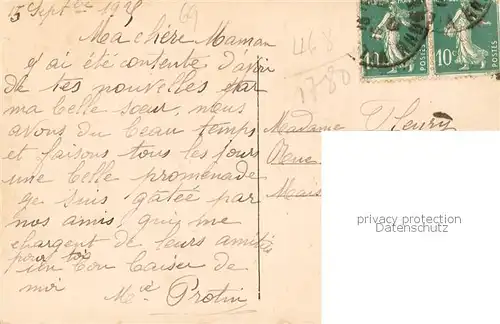 15 Septbre 1925
69
Ma chère Maman
468
1780
POSTES
10c
j ai été contente d'avoir
de tes nouvelles par
ma belle sœur, nous
avons du beau temps
et faisons tous les jours
une belle promenade
je suis gâtée par
nos amis, qui me
chargent de leurs amitiés
pour toi
un bon baiser de
moi
Mie Protin
Madame Fleury
Rue
Mais
privacy protection
Datenschutz